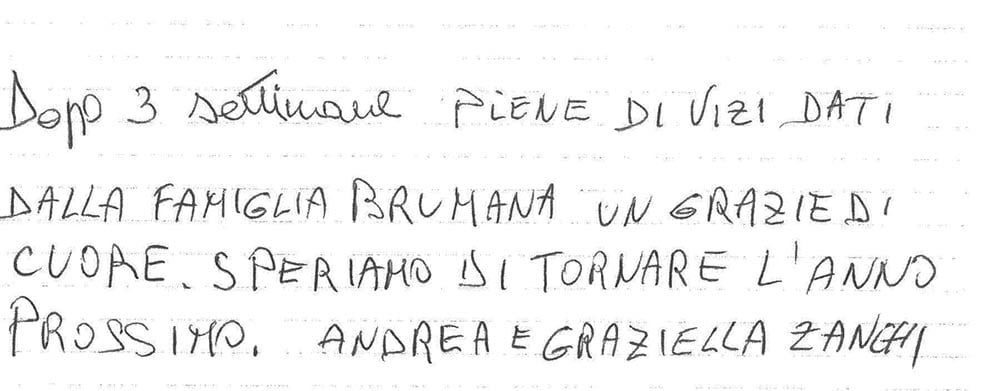 Dopo 3 settimane PIENE DI VIZI DATI
DALLA FAMIGLIA BRUMANA UN GRAZIE DI
CUORE. SPERIAMO DI TORNARE L'ANNO
PROSSIMO. ANDREA E GRAZIELLA ZANCHI